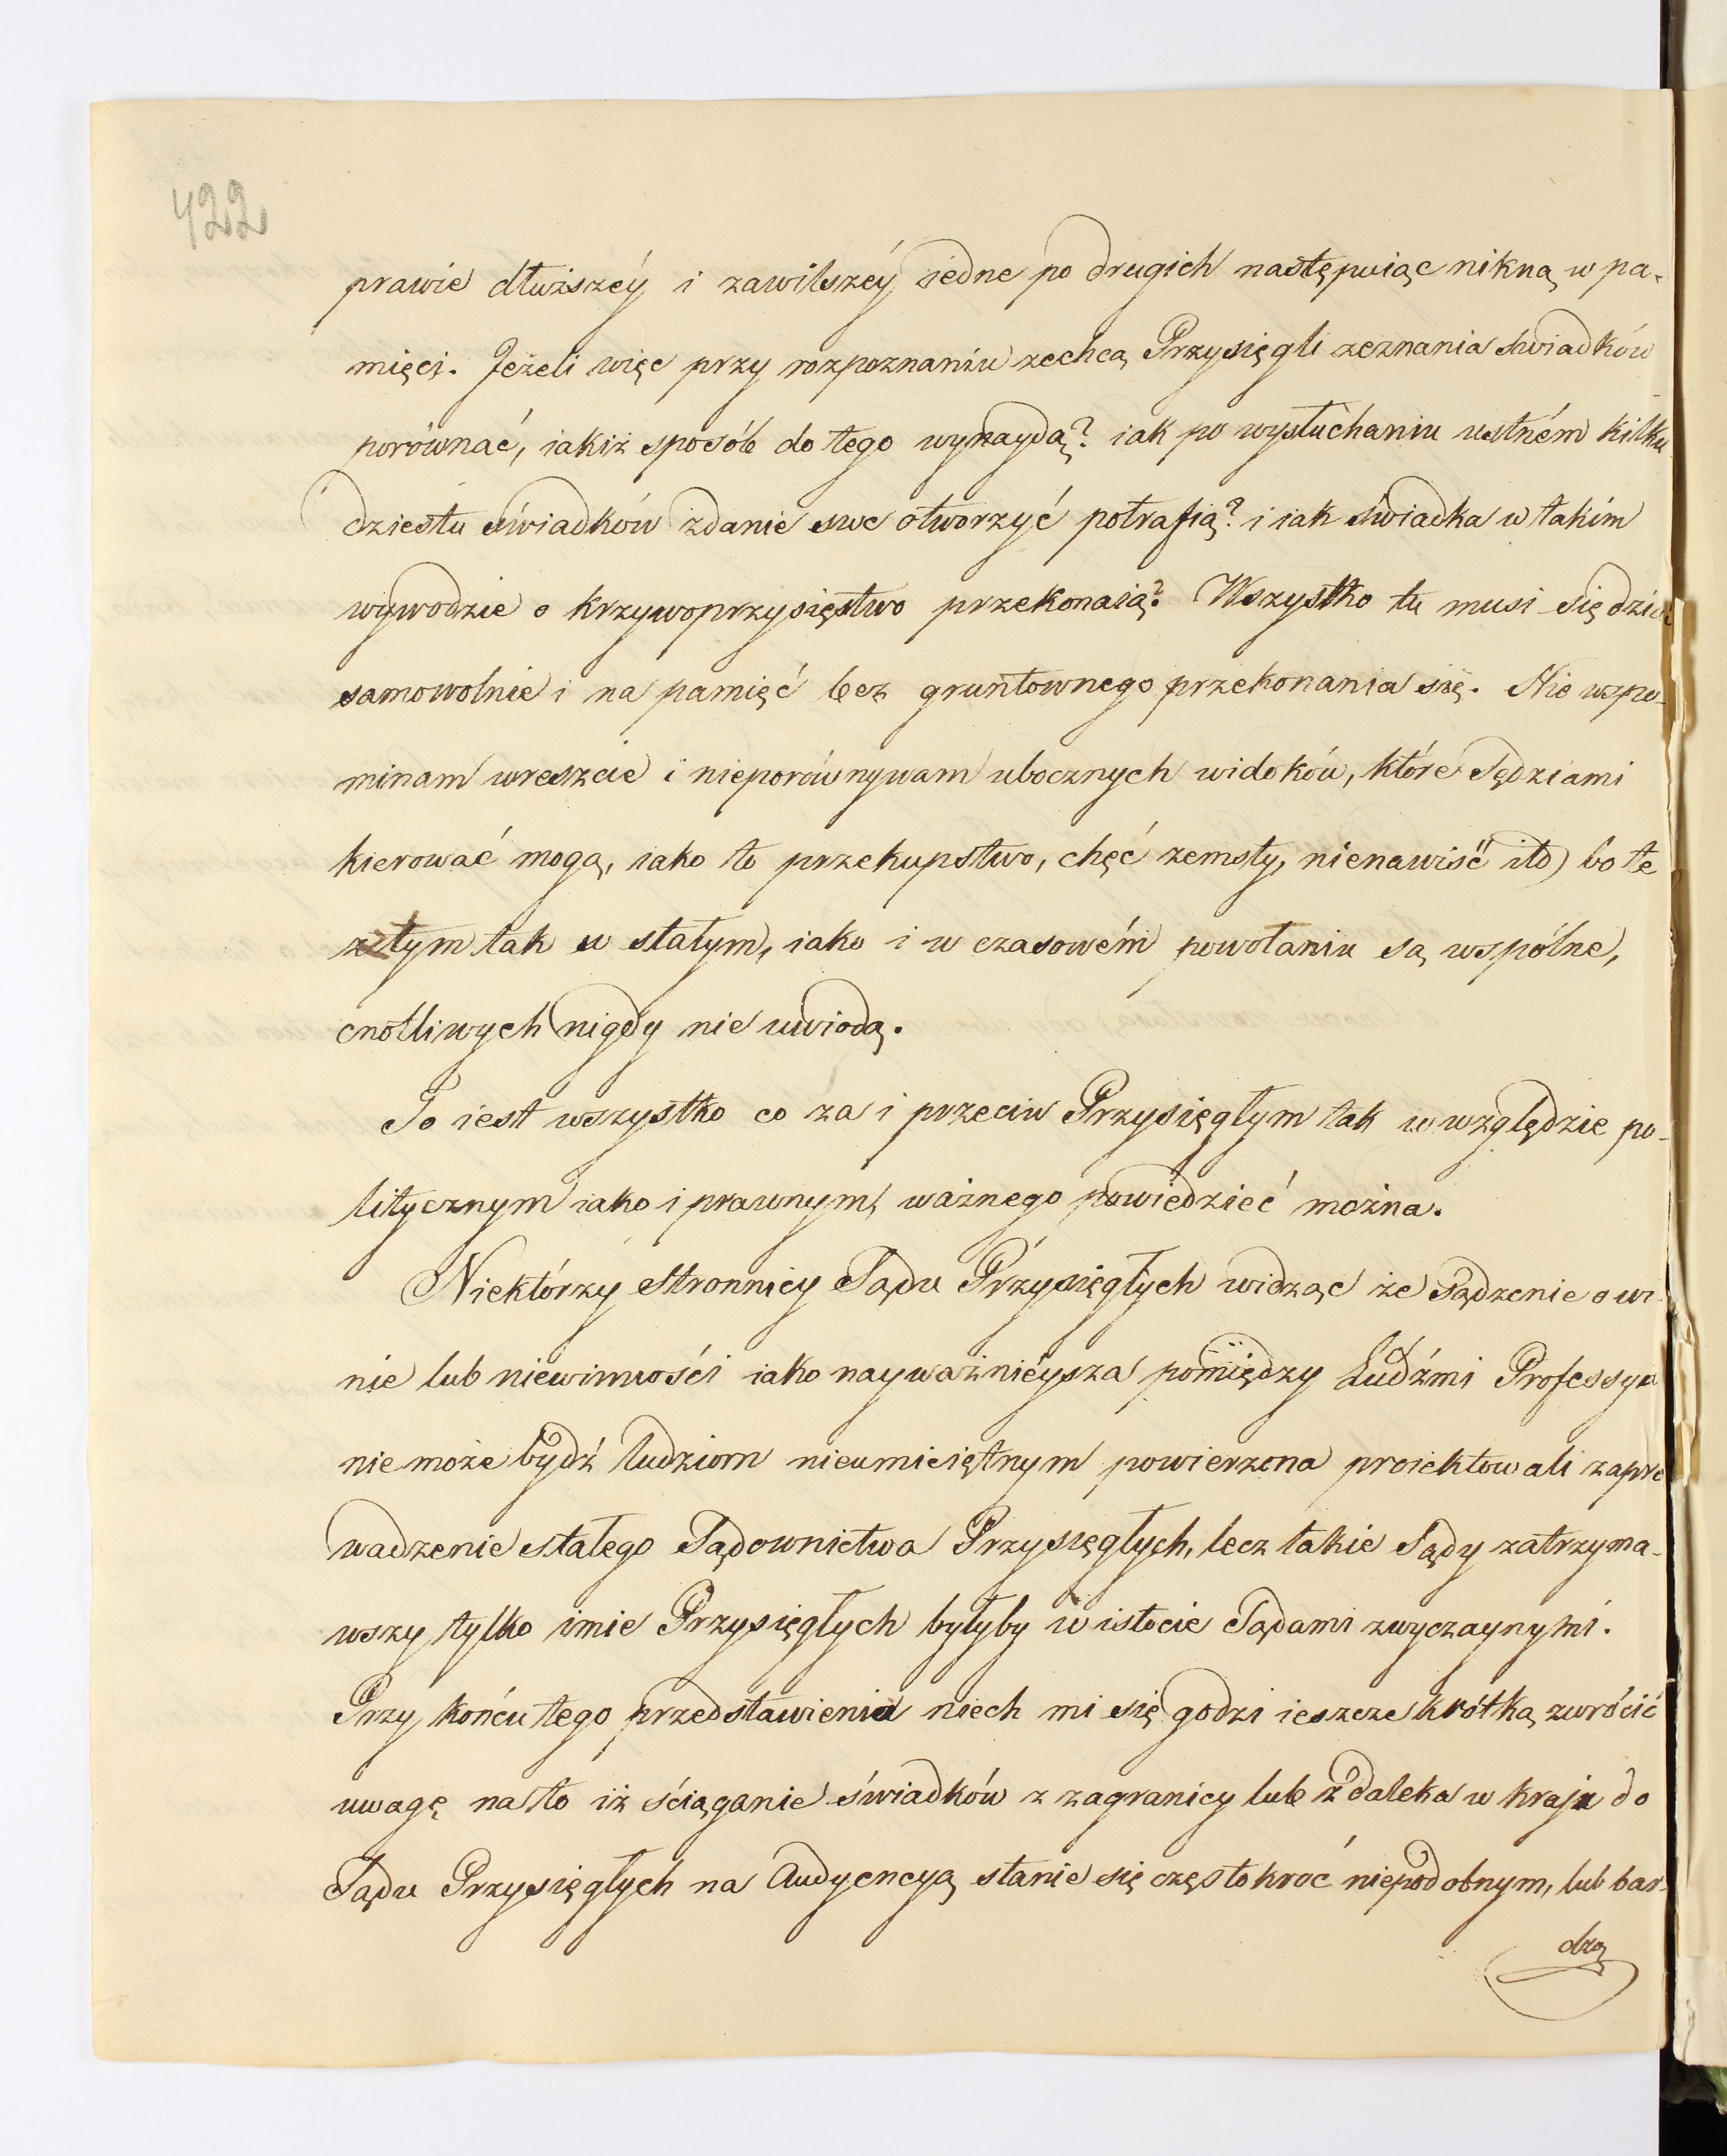 422
prawie dłuższéy i zawilszéy iedne po drugich następuiąc nikną w pa-
mięci. Jeżeli więc przy rozpoznaniu zechcą Przysięgli zeznania świadków
porównać, iakiż sposób do tego wynaydą? iak po wysłuchaniu ustném kilku
dziestu świadków zdanie swe otworzyć potrafią? i iak świadka w takim
wywodzie o krzywoprzysięstwo przekonaią? Wszystko tu musi się dziać
samowolnie i na pamięć bez gruntownego przekonania się. Nie wspo-
minam wreszcie i nieporównywam ubocznych widoków, które Sędziami
kierować mogą, iako to przekupstwo, chęć zemsty, nienawiść itd bo te
złym tak w stałym, iako i w czasowém powołaniu są wspólne,
cnotliwych nigdy nie uwiodą.
To iest wszystko co za i przeciw Przysięgłym tak w względzie po-
litycznym iako i prawnym, ważnego powiedzieć można.
Niektórzy Stronnicy Sądu Przysięgłych widząc że Sądzenie o wi
nie lub niewinności iako nayważnieysza pomiędzy Ludźmi Professya
nie może bydź ludziom nieumieiętnym powierzona proiektowali zapro
wadzenie stałego Sądownictwa Przysięgłych, lecz takie Sądy zatrzyma-
wszy tylko imie Przysięgłych byłyby w istocie Sądami zwyczaynymi.
Przy końcu tego przedstawienia niech mi się godzi ieszcze krótką zwrócić
uwagę na to iż ściąganie świadków z zagranicy lub z daleka w kraju do
Sądu Przysięgłych na Audyencyą stanie się częstokroć niepodobnym, lub bar-
dzo